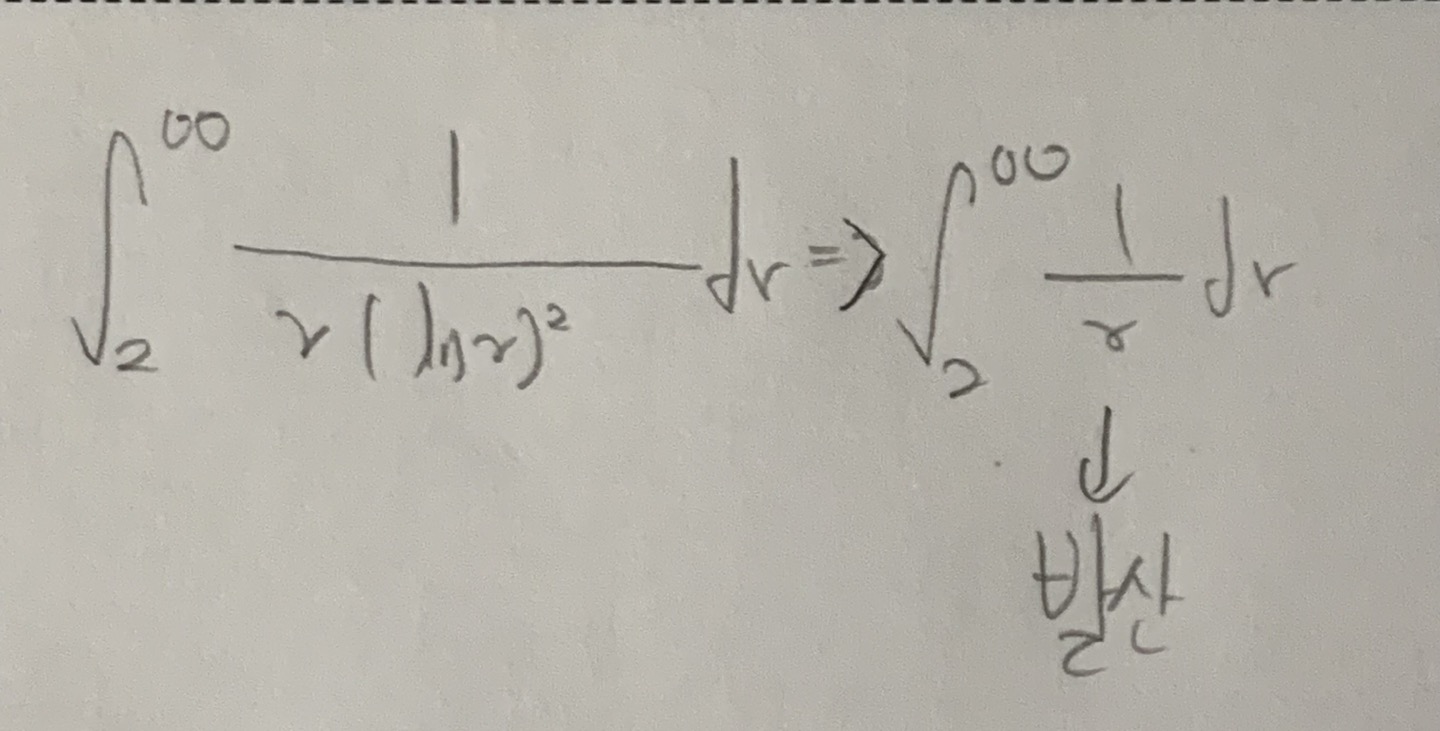 ∫₂^∞ 1/(r(ln r)²) dr => ∫₂^∞ 1/r dr
↓
발산